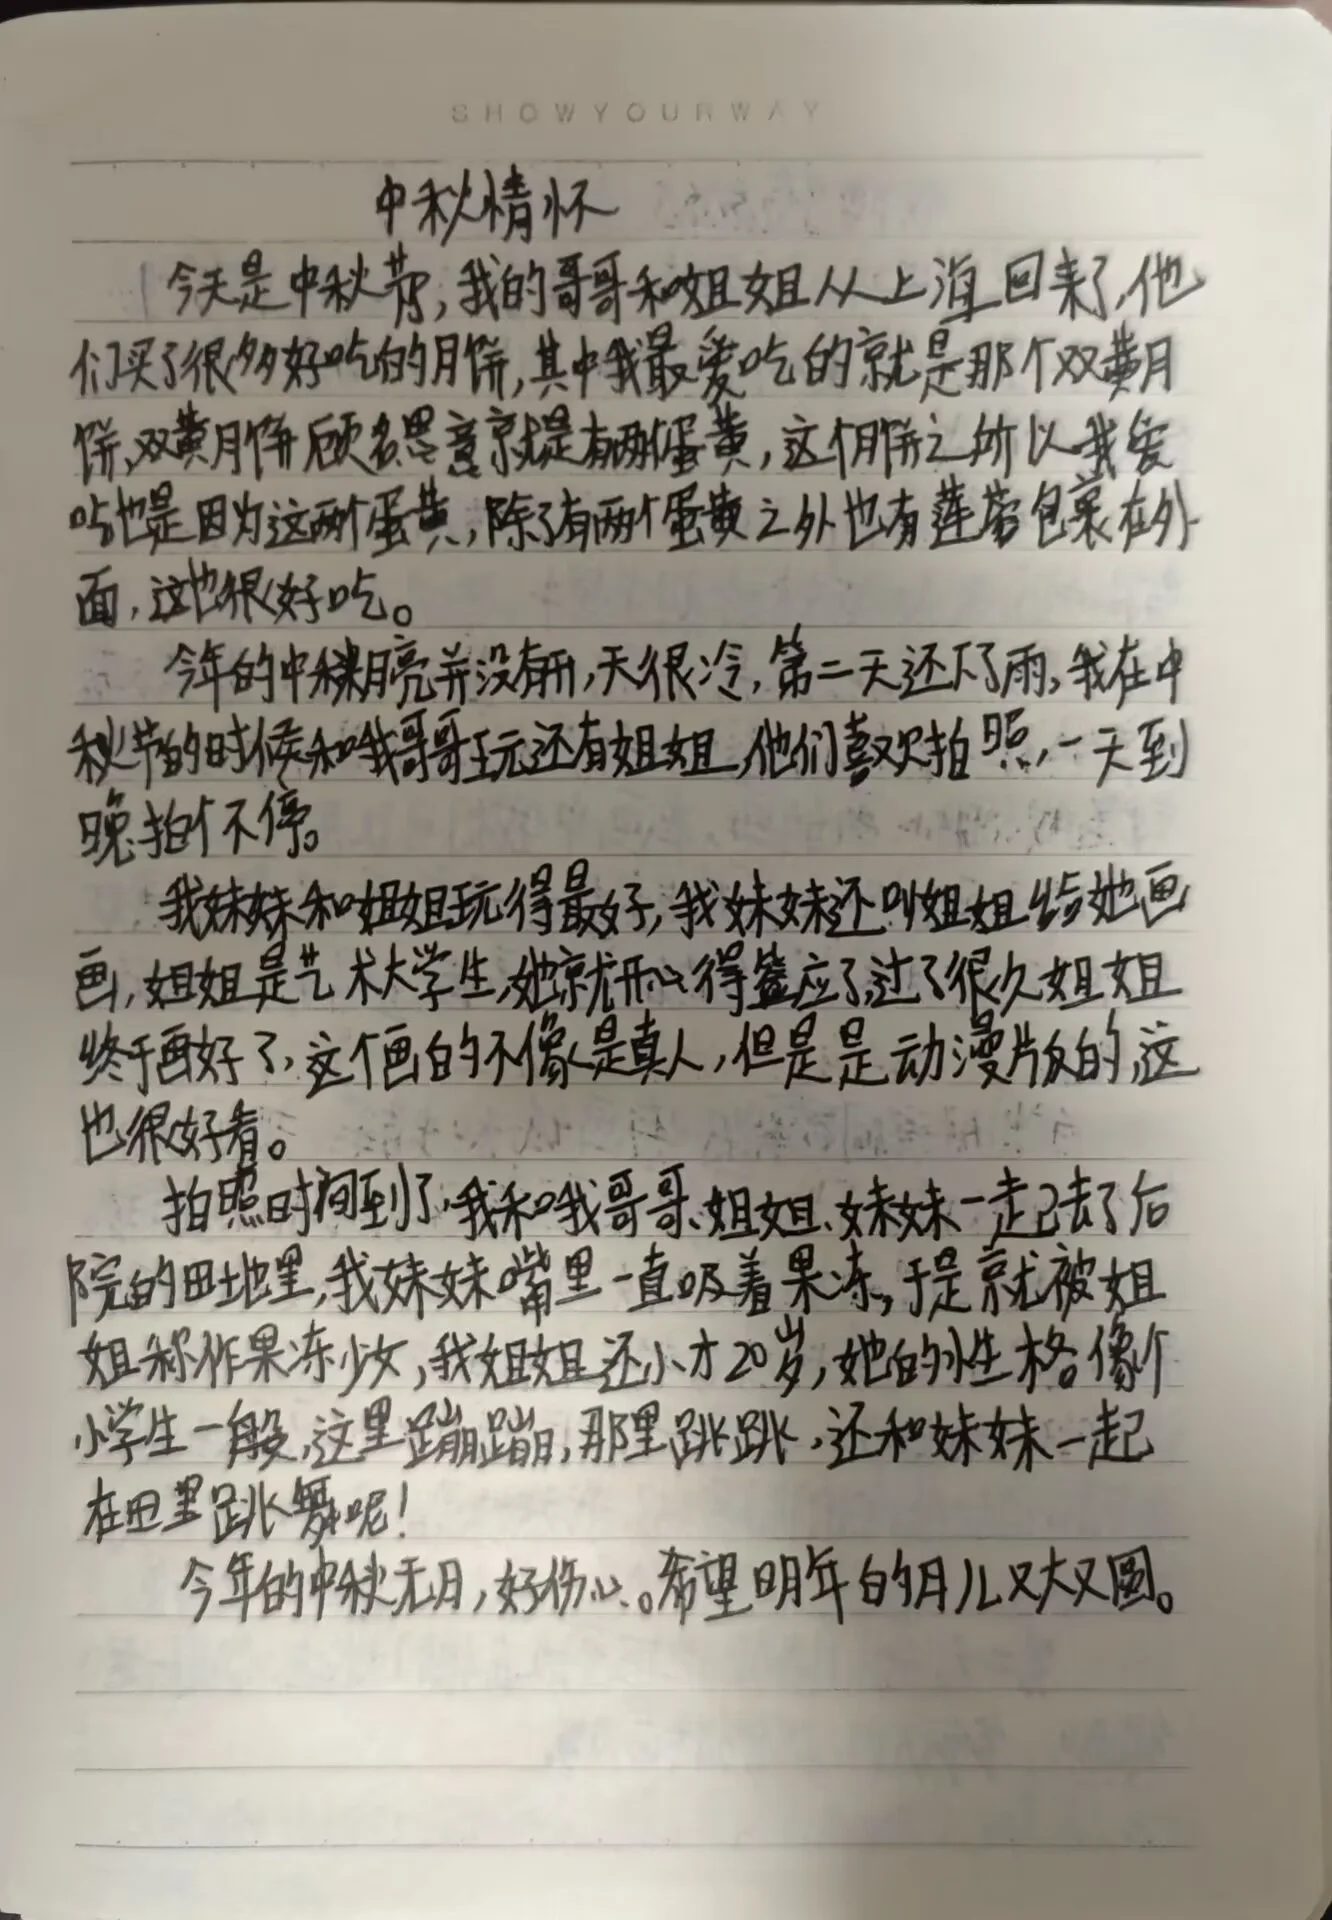 SHOWYOURWAY
中秋情怀
今天是中秋节,我的哥哥和姐姐从上海回来了,他
们买了很多好吃的月饼,其中我最爱吃的就是那个双黄月
饼,双黄月饼顾名思意就是有两个蛋黄,这个月饼之所以我爱
吃也是因为这两个蛋黄,除了有两个蛋黄之外也有莲蓉包裹在外
面,这也很好吃。
今年的中秋月亮并没有升,天很冷,第二天还下了雨,我在中
秋节的时候和我哥哥玩还有姐姐,他们喜欢拍照,一天到
晚拍个不停。
我妹妹和姐姐玩得最好,我妹妹还叫姐姐给她画
画,姐姐是艺术大学生,她就开心得答应了,过了很久姐姐
终于画好了,这个画的不像是真人,但是是动漫版的,这
也很好看。
拍照时间到了,我和我哥哥、姐姐、妹妹一起去了后
院的田地里,我妹妹嘴里一直吸着果冻,于是就被姐
姐称作果冻少女,我姐姐还小才20岁,她的性格像个
小学生一般,这里蹦蹦,那里跳跳,还和妹妹一起
在田里跳舞呢!
今年的中秋无月,好伤心。希望明年的月儿又大又圆。